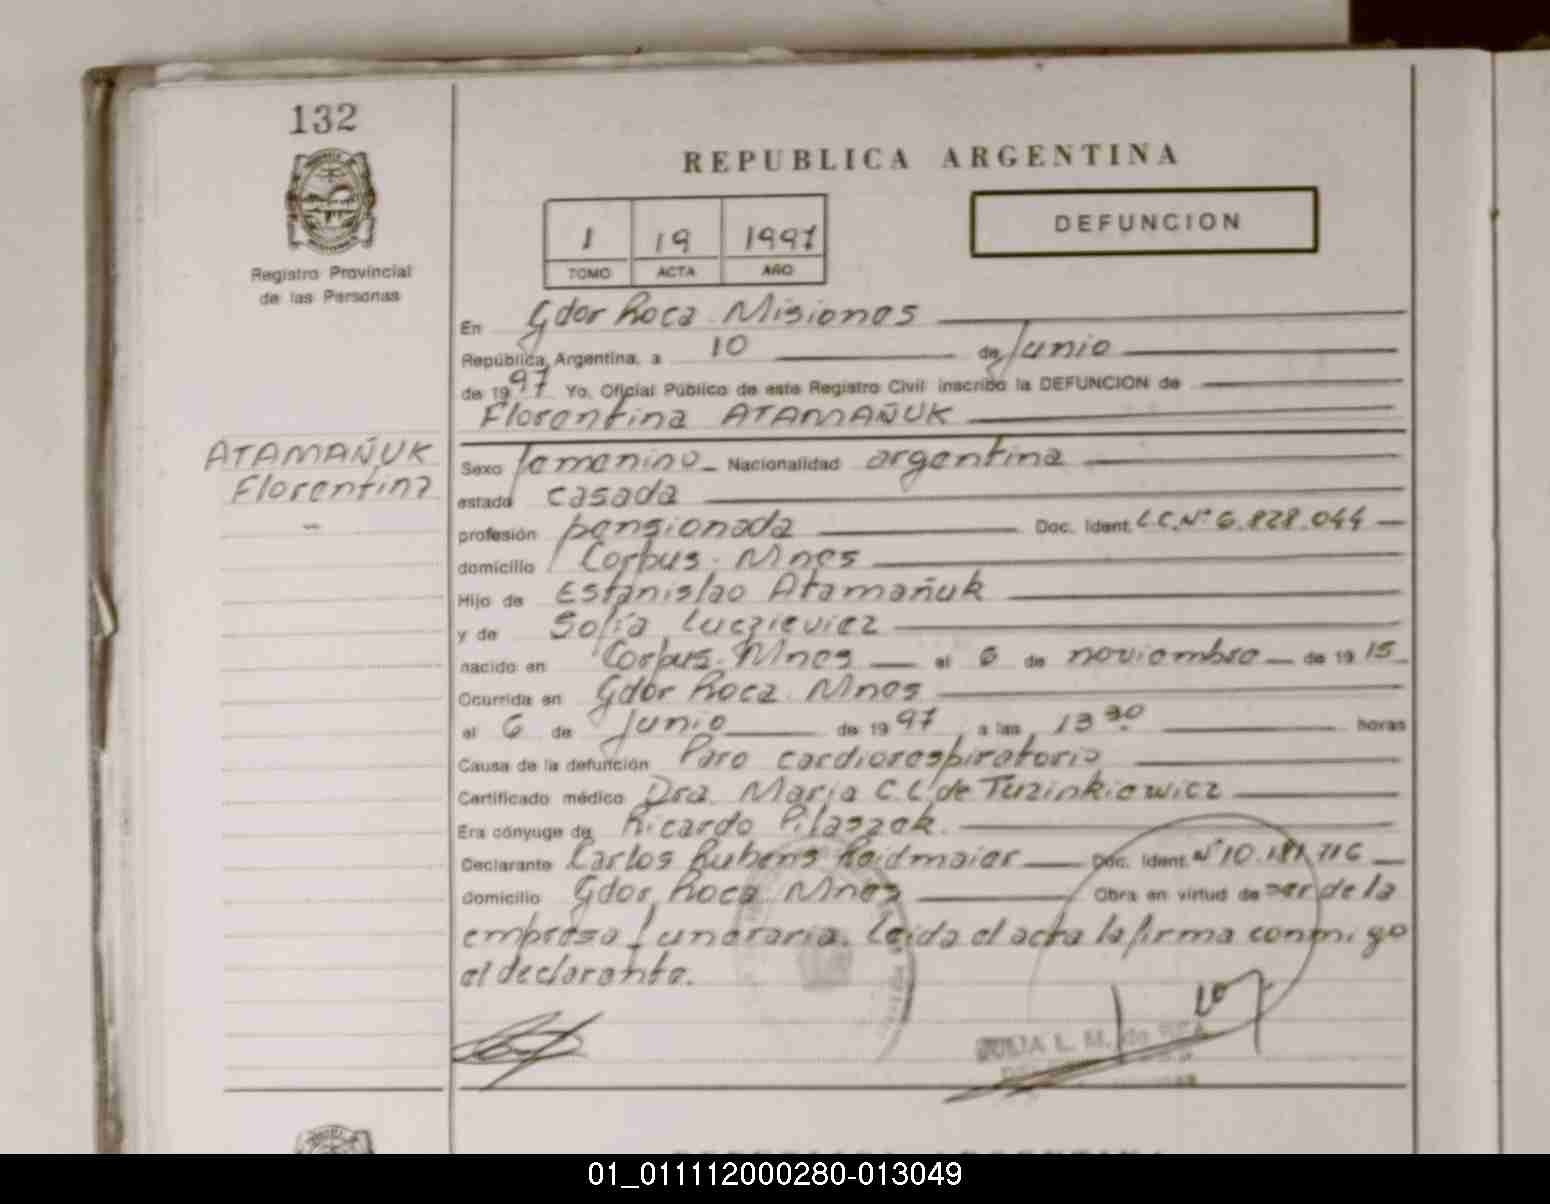 132
REPUBLICA ARGENTINA
DEFUNCION
1 19 1997
TOMO ACTA AÑO
Registro Provincial
de las Personas
En Gdor Roca Misiones
República Argentina, a 10 de Junio
de 1997 Yo, Oficial Público de este Registro Civil inscribo la DEFUNCION de
Florentina ATAMAÑUK
ATAMAÑUK
Florentina
Sexo femenino Nacionalidad argentina
estado casada
profesión pensionada Doc. Ident. L.C.Nº 6.828.044
domicilio Corpus. Mnes
Hijo de Estanislao Atamañuk
y de Sofía Luczieviez
nacido en Corpus. Mnes el 6 de noviembre de 1915
Ocurrida en Gdor Roca Mnes
el 6 de Junio de 1997 a las 13 30 horas
Causa de la defunción Paro cardiorespiratorio
Certificado médico Dra. Maria C. L. de Tuzinkiewicz
Era cónyuge de Ricardo Pilaszek.
Declarante Carlos Rubens Reidmaier Doc. Ident. Nº 10.181.716
domicilio Gdor. Roca Mnes Obra en virtud de ser de la
empresa funeraria. Leida el acta la firma conmigo
el declarante.
JULIA L. M. de
01_011112000280-013049